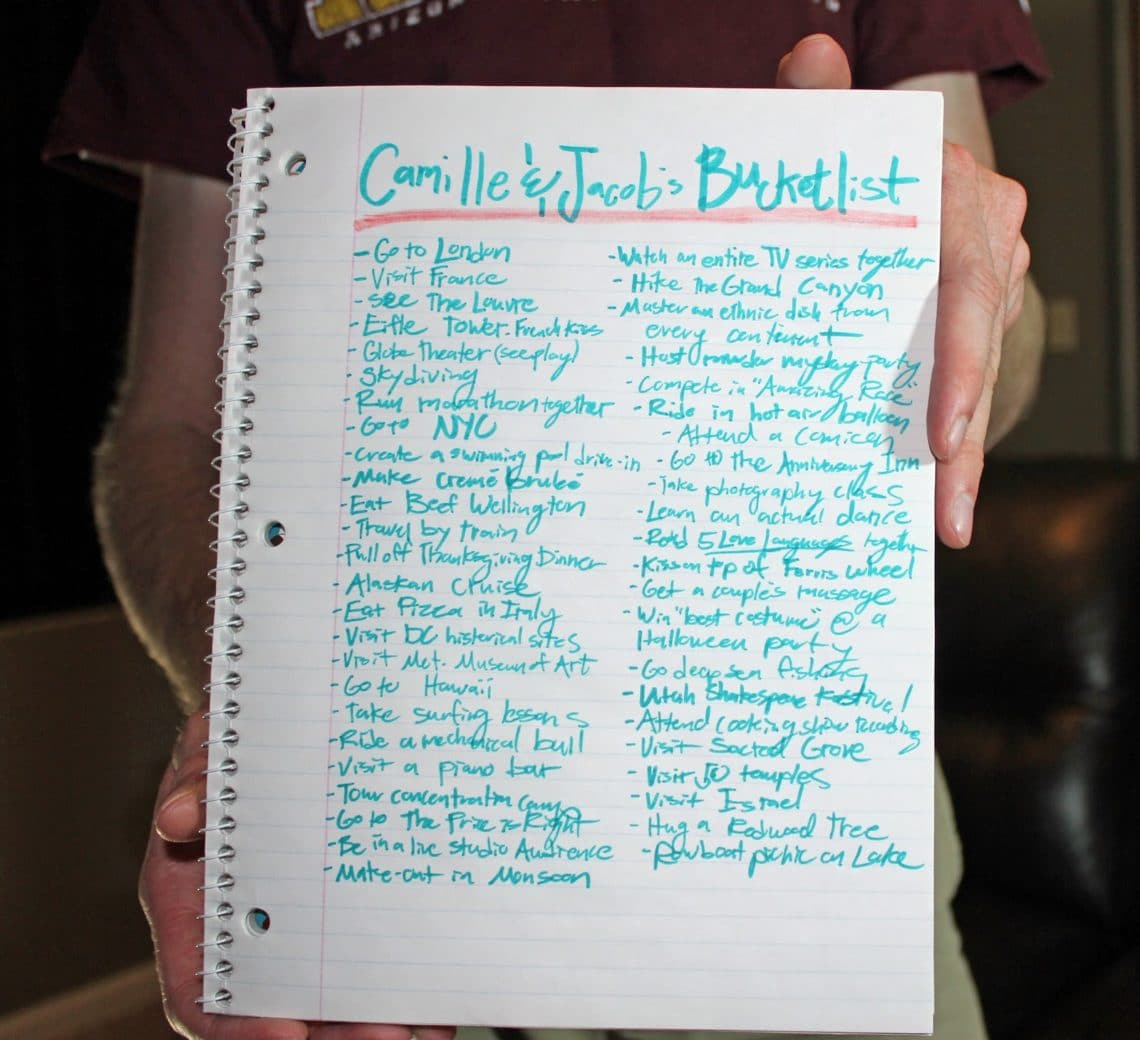 ARIZON
Camille & Jacob's Bucketlist
- Go to London
- Visit France
- See The Louvre
- Eifle Tower - French Kiss
- Globe Theater (see play)
- Skydiving
- Run marathon together
- Go to NYC
- Create a swimming pool drive-in
- Make Cremé Brulé
- Eat Beef Wellington
- Travel by train
- Pull off Thanksgiving Dinner
- Alaskan Cruise
- Eat Pizza in Italy
- Visit DC historical sites
- Visit Met. Museum of Art
- Go to Hawaii
- Take surfing lessons
- Ride a mechanical bull
- Visit a piano bar
- Tour concentration Camp
- Go to The Price is Right
- Be in a live studio Audience
- Make-out in Monsoon
- Watch an entire TV series together
- Hike The Grand Canyon
- Master an ethnic dish from
every continent
- Host murder mystery party
- Compete in "Amazing Race"
- Ride in hot air balloon
- Attend a Comicon
- Go to the Anniversary Inn
- Take photography class
- Learn an actual dance
- Read 5 Love Languages together
- Kiss on top of Ferris wheel
- Get a couple's massage
- Win "best costume" @ a
Halloween party
- Go deep sea fishing
- Utah Shakespeare Festival
- Attend cooking show recording
- Visit Sacred Grove
- Visit 50 temples
- Visit Israel
- Hug a Redwood Tree
- Rowboat picnic on Lake